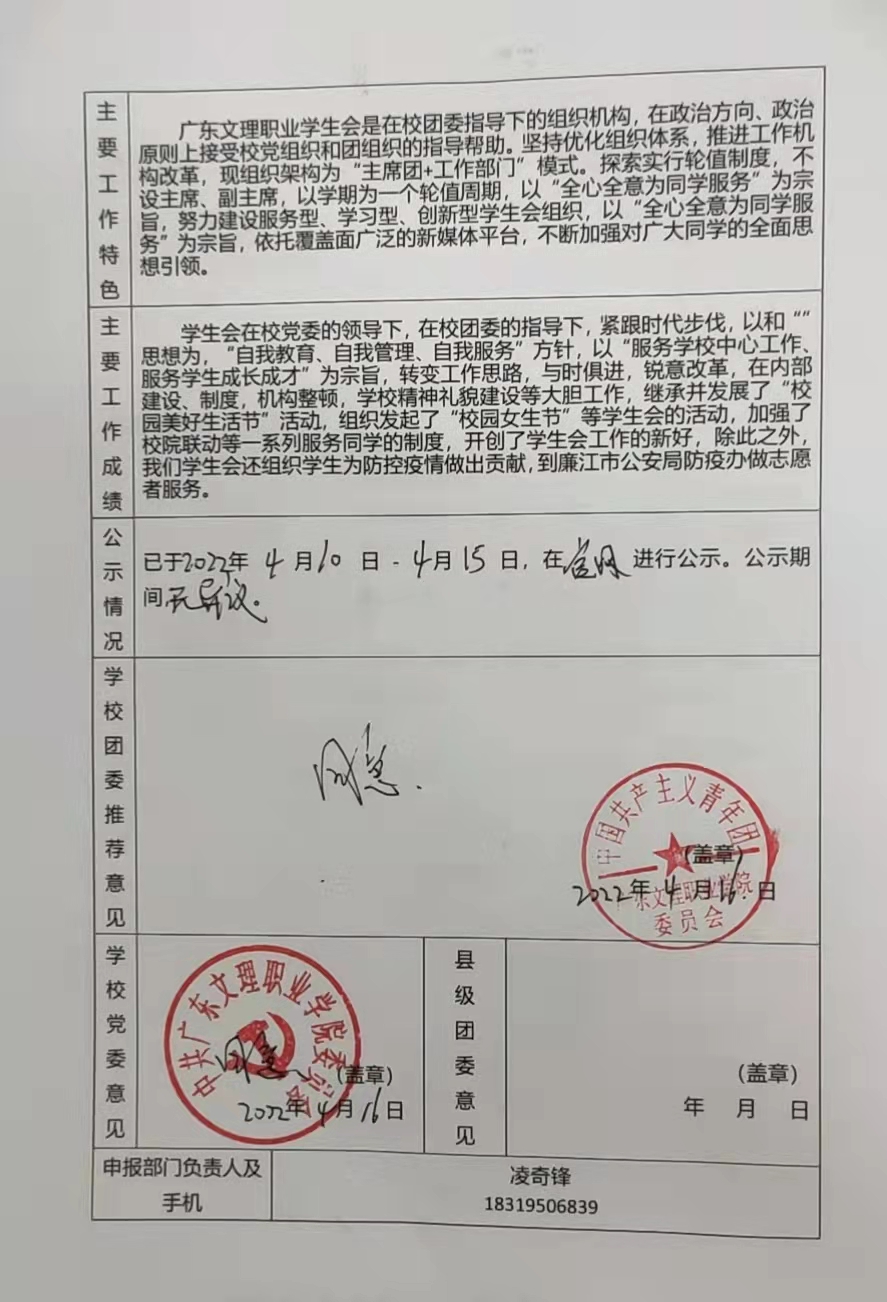 主要工作特色
广东文理职业学生会是在校团委指导下的组织机构，在政治方向、政治
原则上接受校党组织和团组织的指导帮助。坚持优化组织体系，推进工作机
构改革，现组织架构为“主席团+工作部门”模式。探索实行轮值制度，不
设主席、副主席，以学期为一个轮值周期，以“全心全意为同学服务”为宗
旨，努力建设服务型、学习型、创新型学生会组织，以“全心全意为同学服
务”为宗旨，依托覆盖面广泛的新媒体平台，不断加强对广大同学的全面思
想引领。
主要工作成绩
学生会在校党委的领导下，在校团委的指导下，紧跟时代步伐，以和“”
思想为，“自我教育、自我管理、自我服务”方针，以“服务学校中心工作、
服务学生成长成才”为宗旨，转变工作思路，与时俱进，锐意改革，在内部
建设、制度，机构整顿，学校精神礼貌建设等大胆工作，继承并发展了“校
园美好生活节”活动，组织发起了“校园女生节”等学生会的活动，加强了
校院联动等一系列服务同学的制度，开创了学生会工作的新好，除此之外，
我们学生会还组织学生为防控疫情做出贡献，到廉江市公安局防疫办做志愿
者服务。
公示情况
已于2022年 4月10日-4月15日，在官网进行公示。公示期
间无异议。
学校团委推荐意见
同意.
中国共产主义青年团
广东文理职业学院
委员会
（盖章）
2022年4月16日
学校党委意见
中共广东文理职业学院委员会
同意
（盖章）
2022年4月16日
县级团委意见
（盖章）
年 月 日
申报部门负责人及
手机
凌奇锋
18319506839